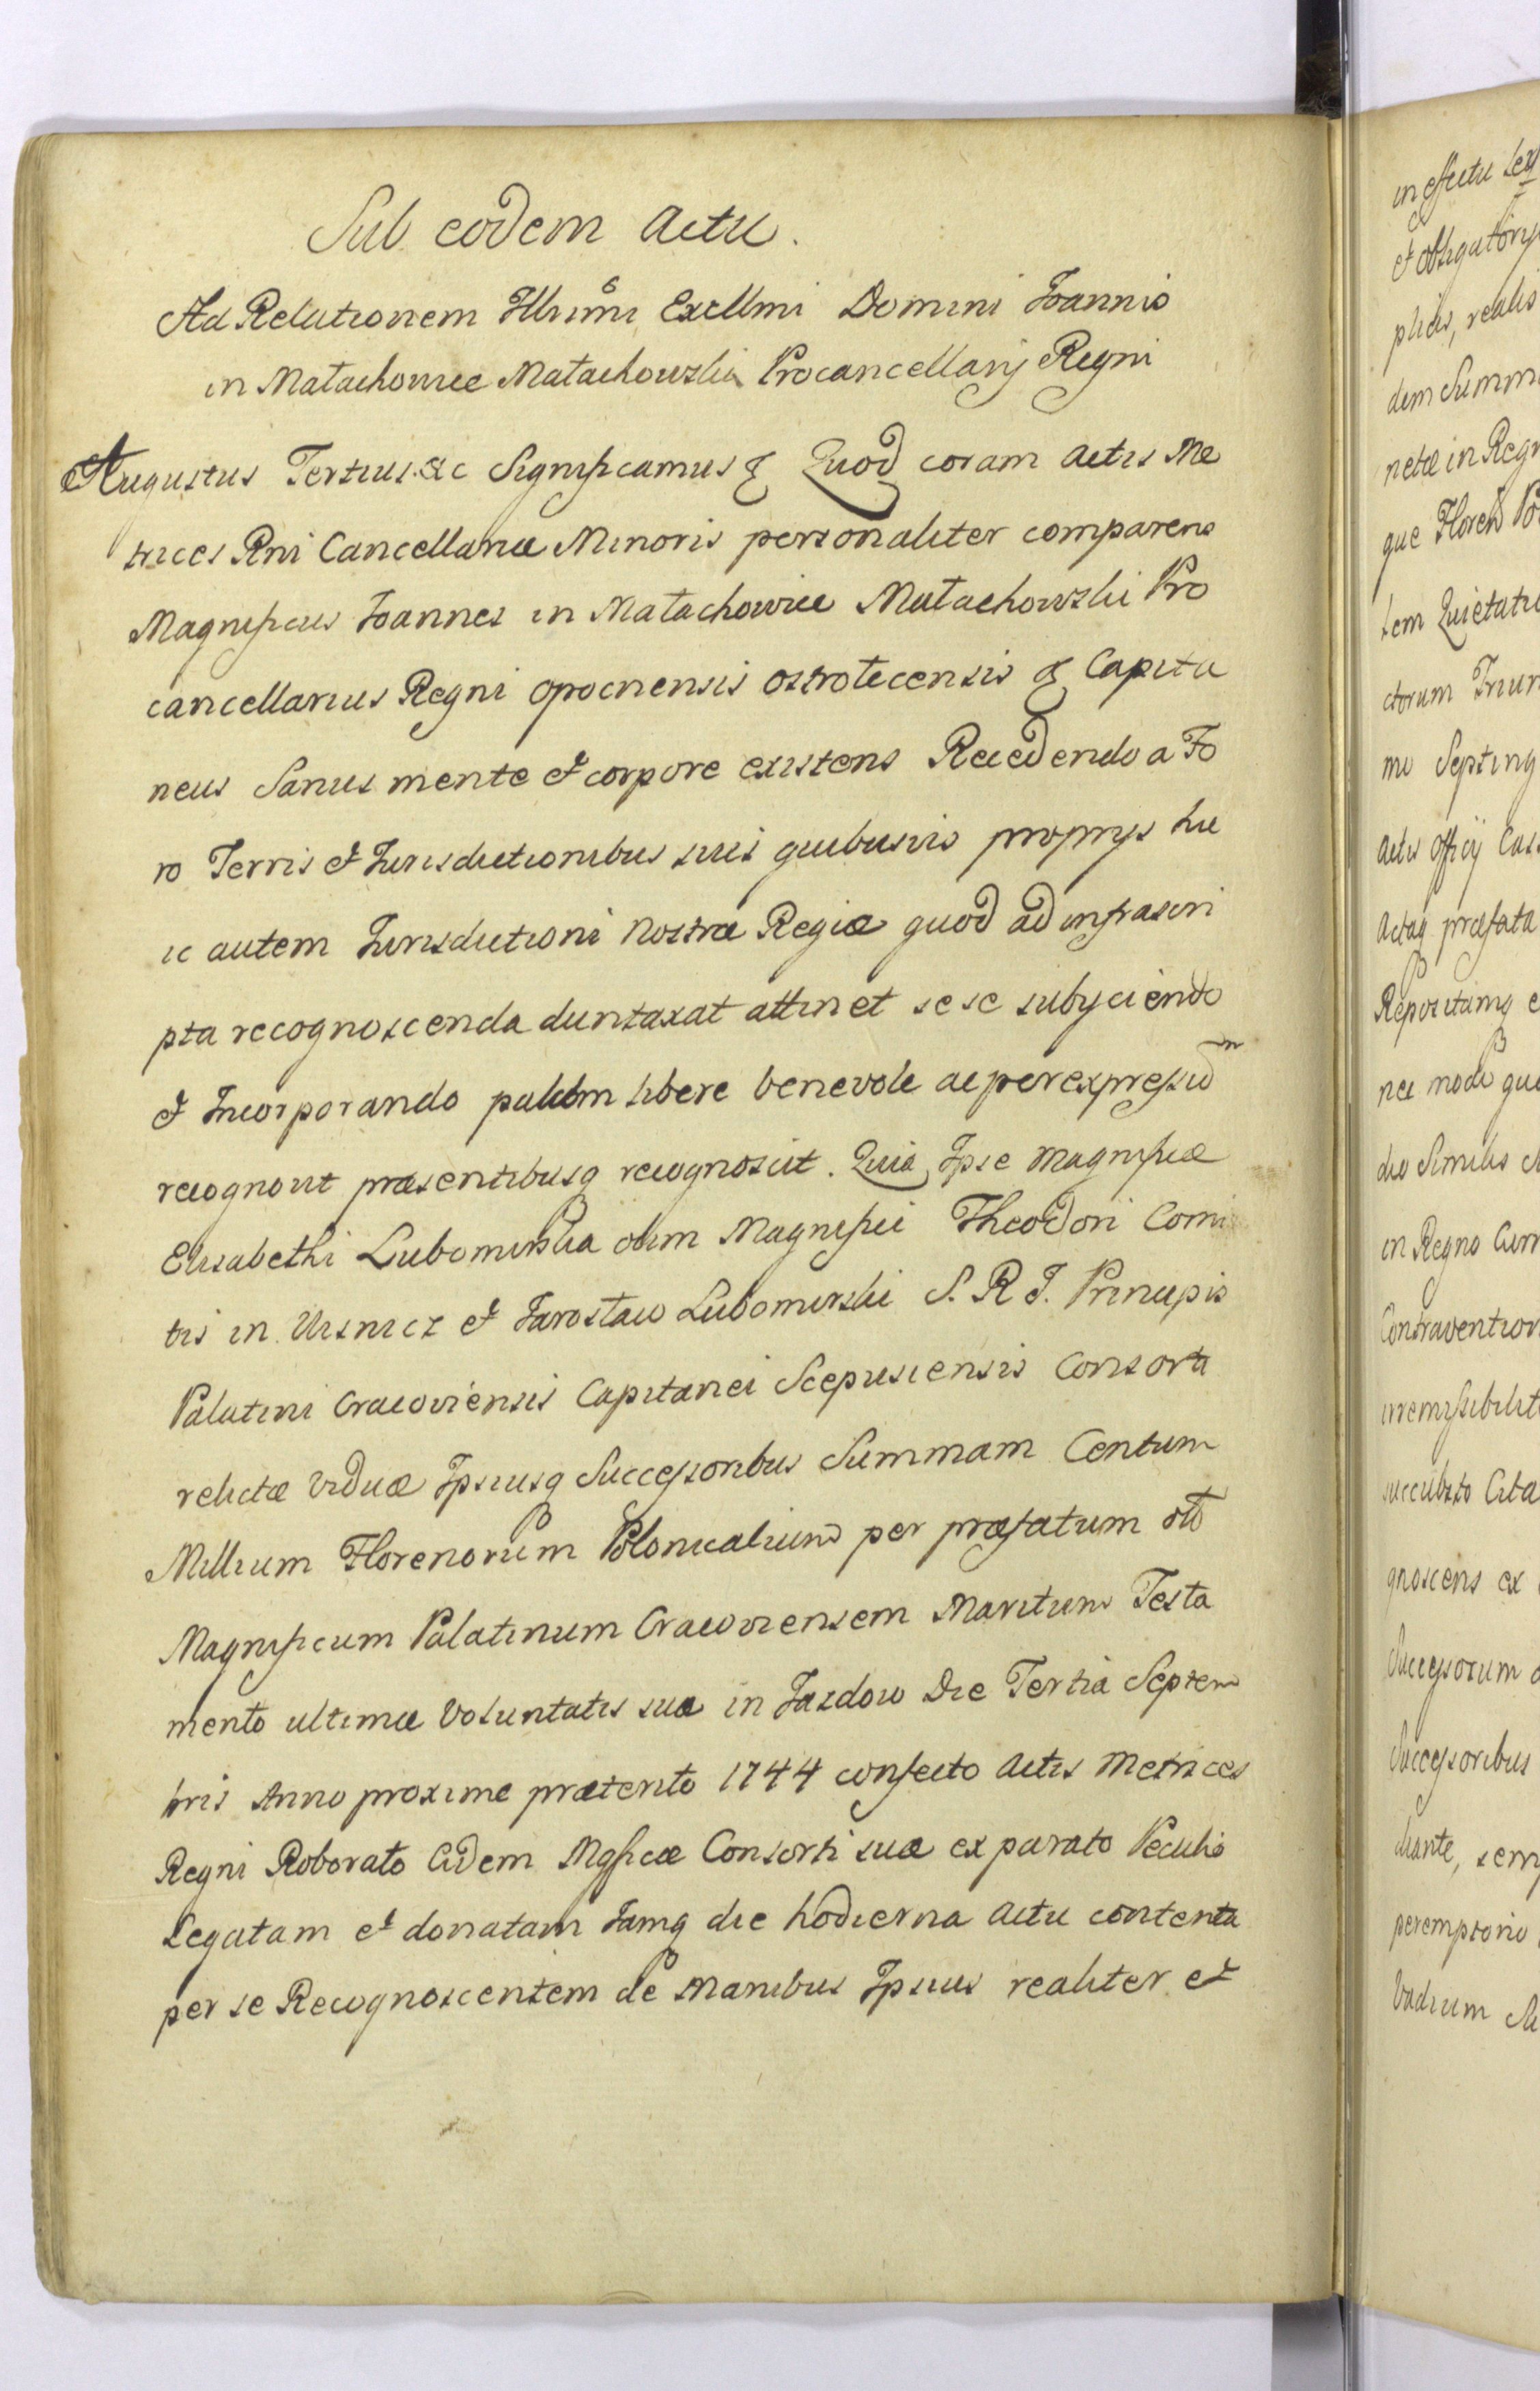 Sub eodem Actu.
Ad Relationem Illrimi Excellmi Domini Joannis
in Małachowice Małachowski Procancellarij Regni
Augustus Tertius &c Significamus & Quod coram Actis Me
trices Rni Cancellariæ Minoris personaliter comparens
Magnificus Joannes in Małachowice Małachowski Pro
cancellarius Regni Opocnensis Ostrołecensis & Capita
neus Sanus mente et corpore existens Recedendo a Fo
ro Terris et Jurisdictionibus suis quibusvis proprijs hu
ic autem Jurisdictioni Nostræ Regiæ quod ad infrascri
pta recognoscenda duntaxat attinet sese subijciendo
et Incorporando palam libere benevole ac per expressum
recognovit præsentibusq recognoscit. Quia Ipse Magnificæ
Elisabethi Lubomirska olim Magnifici Theodori Comi
tis in Wisnicz et Jarosław Lubomirski S. R. I. Principis
Palatini Cracoviensis Capitanei Scepusiensis Consorti
relictæ Viduæ Ipsiusq Successoribus Summam Centum
Millium Florenorum Polonicalium per præfatum olim
Magnificum Palatinum Cracoviensem Maritum Testa
mento ultimæ Voluntatis suæ in Jazdow Die Tertia Septem
bris Anno proxime præterito 1744 confecto Actis Metrices
Regni Roborato Eidem Mgficæ Consorti suæ ex parato Peculio
Legatam et donatam Jamq die hodierna Actu contenta
per se Recognoscentem de Manibus Ipsius realiter et
in effectu
et obligatory
plicis, realis
dem Summ
netæ in Reg
que Floren Po
tem Quietati
ctorum
mo Septing
Actis Officij Cas
Actaq præfata
nec modo
dio Similis
in Regno
Contravention
irremissibilit
succubito Cita
gnoscens ex
Successorum
Successoribus
diante, sem
peremptorio
Vadium